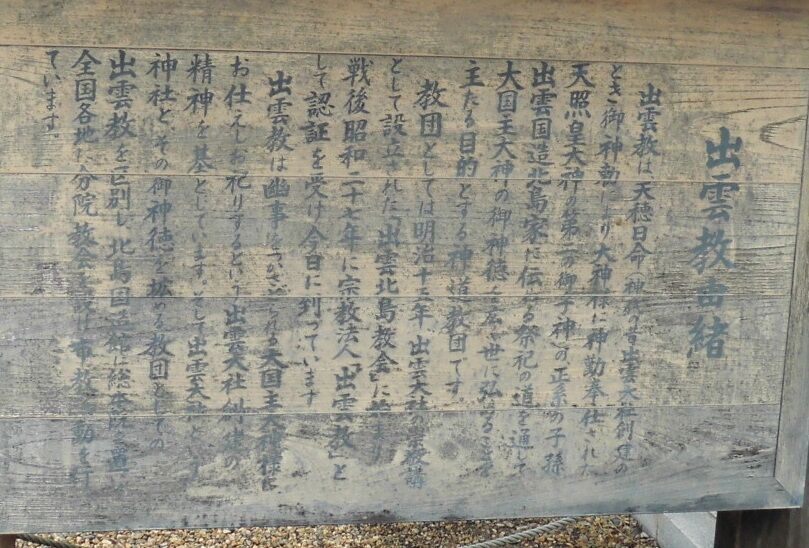 出雲教由緒
出雲教は天穂日命（神代の昔出雲大社創建の
とき御神勅により大神様に神勤奉仕された
天照皇大神の第二の御子神）の正系の子孫
出雲国造北島家に伝はる祭祀の道を通して
大国主大神の御神徳を広く世に弘めることを
主たる目的とする神道教団です
教団としては明治十五年、出雲大社の宗教講
として設立された「出雲北島教会」に始まり
戦後昭和二十七年に宗教法人「出雲教」と
して認証を受け今日に到っています
出雲教は幽事をつかさどられる大国主大神様に
お仕えしお祀りするという出雲大社創建の
精神を基としています。そして出雲大社という
神社と、その御神徳を拡める教団としての
出雲教を区別し北島国造館に総本院を置
全国各地に分院 教会 布教 動を行
ています。